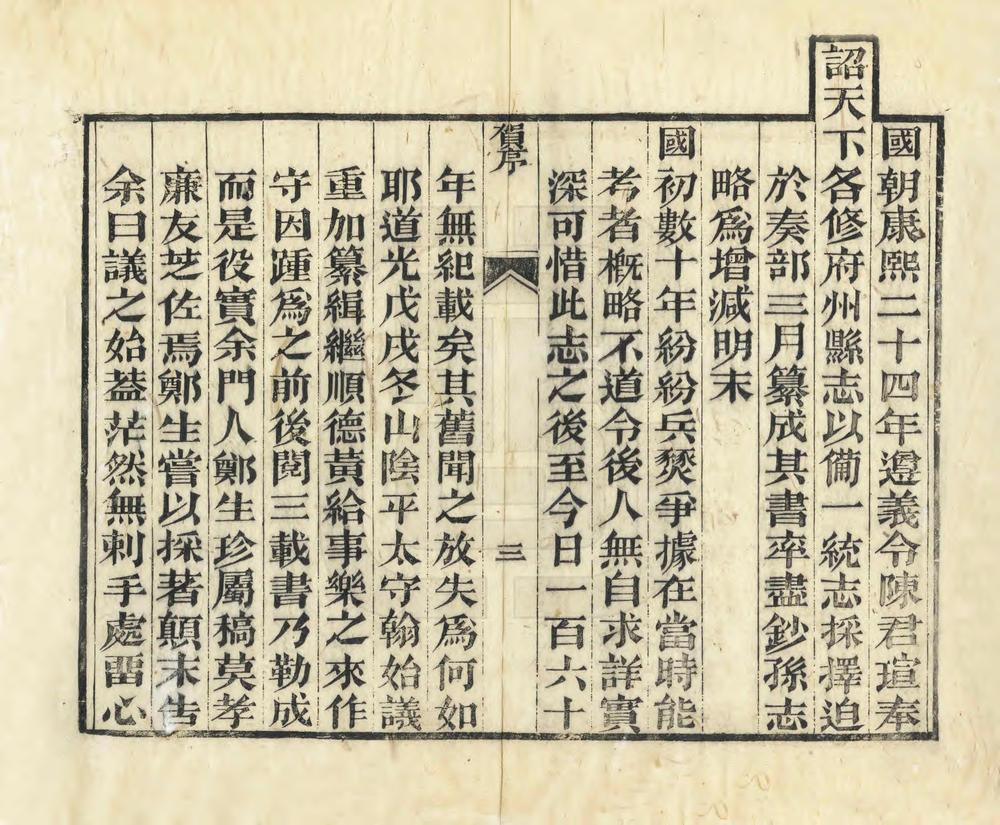 國朝康熙二十四年遵義令陳君瑄奉
詔天下各修府州縣志以僃一統志採擇迫
於奏部三月纂成其書卒盡鈔孫志
略爲增減明末
國初數十年紛紛兵燹爭據在當時能
考者概略不道令後人無自求詳實
深可惜此志之後至今日一百六十
賀序
三
年無紀載矣其舊聞之放失爲何如
耶道光戊戌冬山陰平太守翰始議
重加纂緝繼順德黃給事樂之來作
守因踵爲之前後閱三載書乃勒成
而是役實余門人鄭生珍屬稿莫孝
廉友芝佐焉鄭生嘗以採著顛末告
余曰議之始葢茫然無刺手處畱心